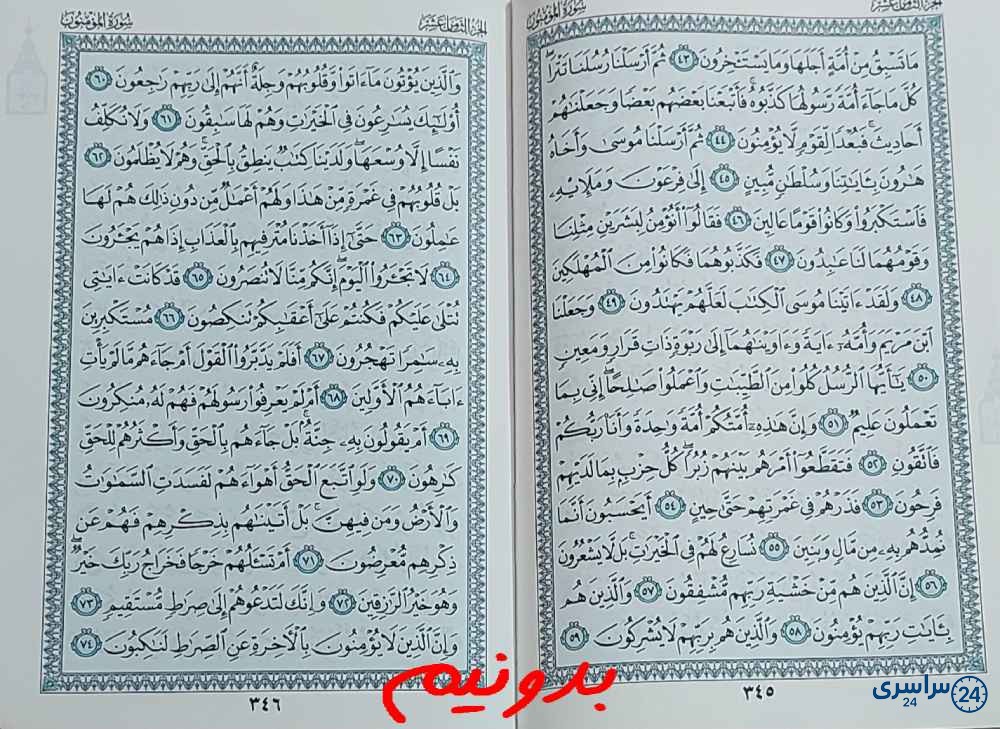 سُورَةُ المُؤْمِنُونَ
مَا تَسْبِقُ مِنْ أُمَّةٍ أَجَلَهَا وَمَا يَسْتَـْٔخِرُونَ ٤٣ ثُمَّ أَرْسَلْنَا رُسُلَنَا تَتْرَا
كُلَّ مَا جَآءَ أُمَّةً رَّسُولُهَا كَذَّبُوهُ فَأَتْبَعْنَا بَعْضَهُم بَعْضًا وَجَعَلْنَٰهُمْ
أَحَادِيثَ فَبُعْدًا لِّقَوْمٍ لَّا يُؤْمِنُونَ ٤٤ ثُمَّ أَرْسَلْنَا مُوسَىٰ وَأَخَاهُ
هَٰرُونَ بِـَٔايَٰتِنَا وَسُلْطَٰنٍ مُّبِينٍ ٤٥ إِلَىٰ فِرْعَوْنَ وَمَلَإِيْهِۦ
فَٱسْتَكْبَرُوا۟ وَكَانُوا۟ قَوْمًا عَالِينَ ٤٦ فَقَالُوٓا۟ أَنُؤْمِنُ لِبَشَرَيْنِ مِثْلِنَا
وَقَوْمُهُمَا لَنَا عَٰبِدُونَ ٤٧ فَكَذَّبُوهُمَا فَكَانُوا۟ مِنَ ٱلْمُهْلَكِينَ
٤٨ وَلَقَدْ ءَاتَيْنَا مُوسَى ٱلْكِتَٰبَ لَعَلَّهُمْ يَهْتَدُونَ ٤٩ وَجَعَلْنَا
ٱبْنَ مَرْيَمَ وَأُمَّهُۥٓ ءَايَةً وَءَاوَيْنَٰهُمَآ إِلَىٰ رَبْوَةٍ ذَاتِ قَرَارٍ وَمَعِينٍ
٥٠ يَٰٓأَيُّهَا ٱلرُّسُلُ كُلُوا۟ مِنَ ٱلطَّيِّبَٰتِ وَٱعْمَلُوا۟ صَٰلِحًا إِنِّى بِمَا
تَعْمَلُونَ عَلِيمٌ ٥١ وَإِنَّ هَٰذِهِۦٓ أُمَّتُكُمْ أُمَّةً وَٰحِدَةً وَأَنَا۠ رَبُّكُمْ
فَٱتَّقُونِ ٥٢ فَتَقَطَّعُوٓا۟ أَمْرَهُم بَيْنَهُمْ زُبُرًا كُلُّ حِزْبٍۭ بِمَا لَدَيْهِمْ
فَرِحُونَ ٥٣ فَذَرْهُمْ فِى غَمْرَتِهِمْ حَتَّىٰ حِينٍ ٥٤ أَيَحْسَبُونَ أَنَّمَا
نُمِدُّهُم بِهِۦ مِن مَّالٍ وَبَنِينَ ٥٥ نُسَارِعُ لَهُمْ فِى ٱلْخَيْرَٰتِ بَل لَّا يَشْعُرُونَ
٥٦ إِنَّ ٱلَّذِينَ هُم مِّنْ خَشْيَةِ رَبِّهِم مُّشْفِقُونَ ٥٧ وَٱلَّذِينَ هُم
بِـَٔايَٰتِ رَبِّهِمْ يُؤْمِنُونَ ٥٨ وَٱلَّذِينَ هُم بِرَبِّهِمْ لَا يُشْرِكُونَ ٥٩
٣٤٥
سُورَةُ المُؤْمِنُونَ
الجُزْءُ الثَّامِنَ عَشَرَ
وَٱلَّذِينَ يُؤْتُونَ مَآ ءَاتَوا۟ وَّقُلُوبُهُمْ وَجِلَةٌ أَنَّهُمْ إِلَىٰ رَبِّهِمْ رَٰجِعُونَ ٦٠
أُو۟لَٰٓئِكَ يُسَٰرِعُونَ فِى ٱلْخَيْرَٰتِ وَهُمْ لَهَا سَٰبِقُونَ ٦١ وَلَا نُكَلِّفُ
نَفْسًا إِلَّا وُسْعَهَا وَلَدَيْنَا كِتَٰبٌ يَنطِقُ بِٱلْحَقِّ وَهُمْ لَا يُظْلَمُونَ ٦٢
بَلْ قُلُوبُهُمْ فِى غَمْرَةٍ مِّنْ هَٰذَا وَلَهُمْ أَعْمَٰلٌ مِّن دُونِ ذَٰلِكَ هُمْ لَهَا
عَٰمِلُونَ ٦٣ حَتَّىٰٓ إِذَآ أَخَذْنَا مُتْرَفِيهِم بِٱلْعَذَابِ إِذَا هُمْ يَجْـَٔرُونَ
٦٤ لَا تَجْـَٔرُوا۟ ٱلْيَوْمَ إِنَّكُم مِّنَّا لَا تُنصَرُونَ ٦٥ قَدْ كَانَتْ ءَايَٰتِى
تُتْلَىٰ عَلَيْكُمْ فَكُنتُمْ عَلَىٰٓ أَعْقَٰبِكُمْ تَنكِصُونَ ٦٦ مُسْتَكْبِرِينَ
بِهِۦ سَٰمِرًا تَهْجُرُونَ ٦٧ أَفَلَمْ يَدَّبَّرُوا۟ ٱلْقَوْلَ أَمْ جَآءَهُم مَّا لَمْ يَأْتِ
ءَابَآءَهُمُ ٱلْأَوَّلِينَ ٦٨ أَمْ لَمْ يَعْرِفُوا۟ رَسُولَهُمْ فَهُمْ لَهُۥ مُنكِرُونَ
٦٩ أَمْ يَقُولُونَ بِهِۦ جِنَّةٌۢ بَلْ جَآءَهُم بِٱلْحَقِّ وَأَكْثَرُهُمْ لِلْحَقِّ
كَٰرِهُونَ ٧٠ وَلَوِ ٱتَّبَعَ ٱلْحَقُّ أَهْوَآءَهُمْ لَفَسَدَتِ ٱلسَّمَٰوَٰتُ
وَٱلْأَرْضُ وَمَن فِيهِنَّ بَلْ أَتَيْنَٰهُم بِذِكْرِهِمْ فَهُمْ عَن
ذِكْرِهِم مُّعْرِضُونَ ٧١ أَمْ تَسْـَٔلُهُمْ خَرْجًا فَخَرَاجُ رَبِّكَ خَيْرٌ
وَهُوَ خَيْرُ ٱلرَّٰزِقِينَ ٧٢ وَإِنَّكَ لَتَدْعُوهُمْ إِلَىٰ صِرَٰطٍ مُّسْتَقِيمٍ ٧٣
وَإِنَّ ٱلَّذِينَ لَا يُؤْمِنُونَ بِٱلْءَاخِرَةِ عَنِ ٱلصِّرَٰطِ لَنَٰكِبُونَ ٧٤
٣٤٦
بدونیم
سراسری
24
24